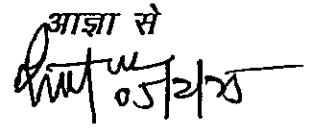 आज्ञा से
05/2/25